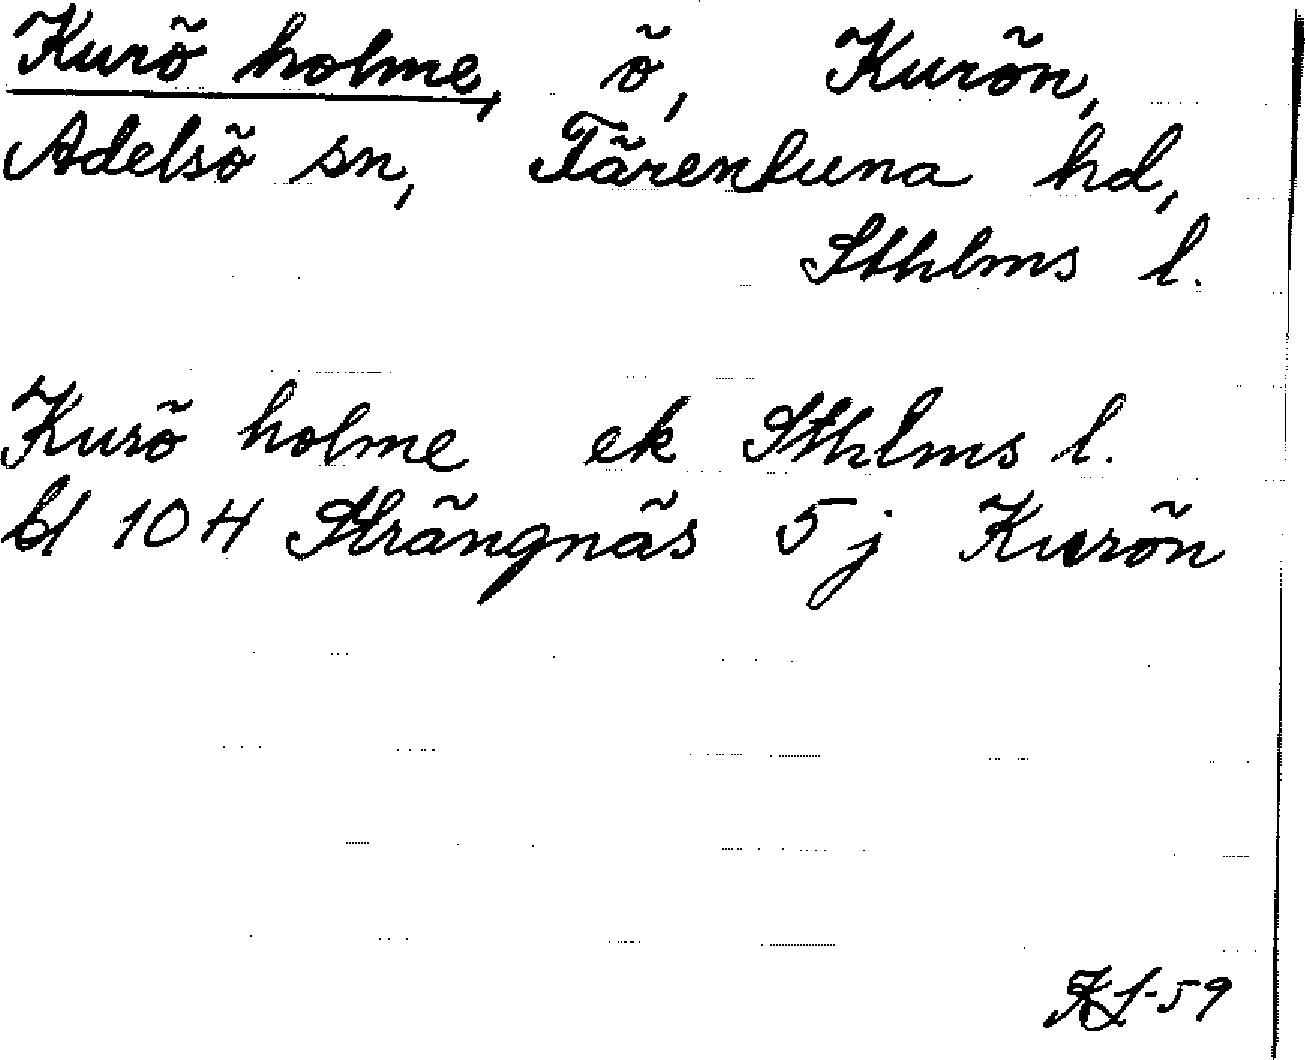 Kurö holme, ö, Kurön,
Adelsö sn, Färentuna hd,
Sthlms l.
Kurö holme ek Sthlms l.
bl 10 H Strängnäs 5 j Kurön
-59